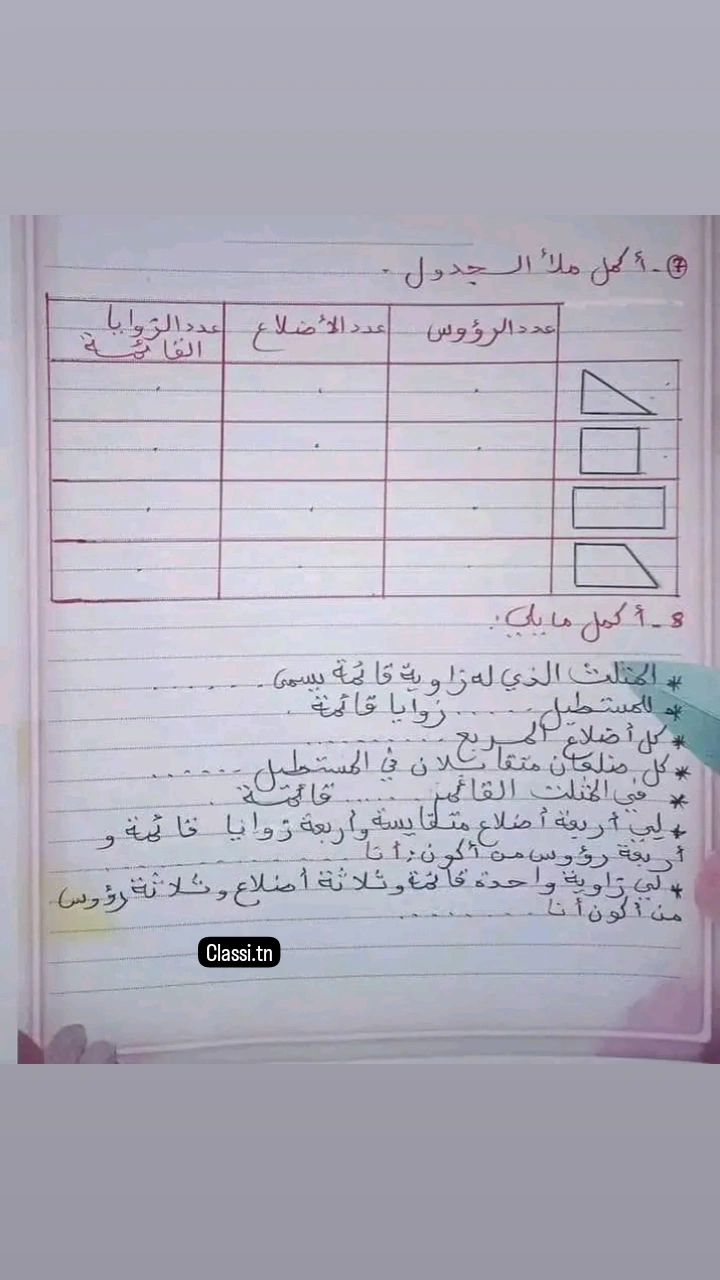 7 - أكمل ملأ الجدول .
عدد الرؤوس عدد الأضلاع عدد الزوايا القائمة
8 - أكمل ما يلي :
* المثلث الذي له زاوية قائمة يسمى ..........
* للمستطيل ...... زوايا قائمة .
* كل أضلاع المربع ..........
* كل ضلعان متقابلان في المستطيل .......
* في المثلث القائم ...... قائمة .
* لي أربعة أضلاع متقايسة وأربعة زوايا قائمة و
أربعة رؤوس من أكون : أنا ..........
* لي زاوية واحدة قائمة وثلاثة أضلاع وثلاثة رؤوس
من أكون أنا ..........
Classi.tn